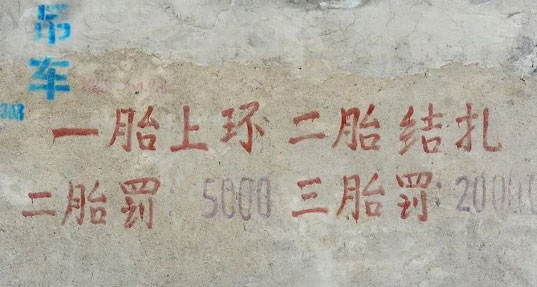 吊车
一胎上环 二胎结扎
二胎罚: 5000 三胎罚: 20000